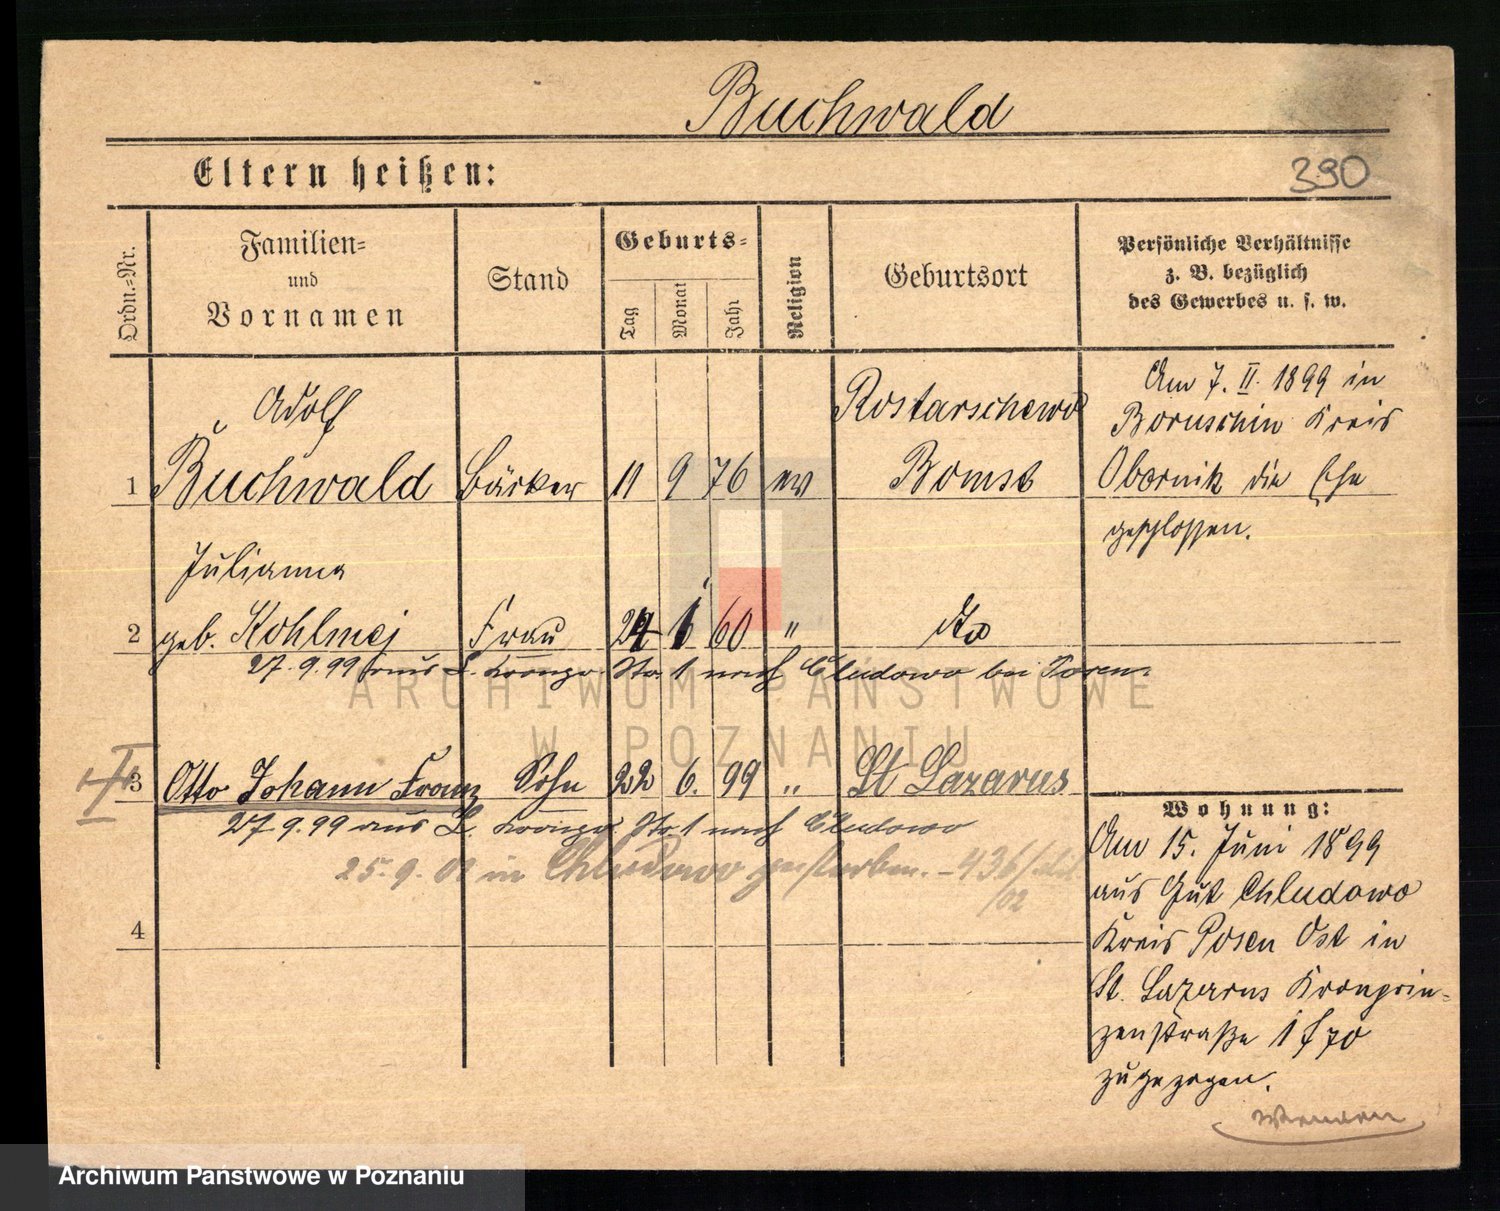 Buchwald
Eltern heißen:
390
Ordn.-Nr.
Familien-
und
Vornamen
Stand
Geburts-
Tag
Monat
Jahr
Religion
Geburtsort
Persönliche Verhältnisse
z. B. bezüglich
des Gewerbes u. s. w.
Adolf
1 Buchwald Bäcker 11 9 76 ev
Rostarschewo
Bomst
Am 7. II. 1899 in
Boruschin Kreis
Obornik die Ehe
geschlossen.
Julianna
2 geb. Kohlmej Frau 24 60 " do
27.9.99 aus L. Kronpr. Str. 1 nach Chludowo bei Posen.
3 Otto Johann Franz Sohn 22 6. 99 " St Lazarus
27.9.99 aus L. Kronpr Str. 1 nach Chludowo
25.9.02 in Chludowo gestorben. - 436/
/02
4
Wohnung:
Am 15. Juni 1899
aus Gut Chludowo
Kreis Posen Ost in
St. Lazarus Kronprin-
zenstraße 1 f 70
zugezogen.
Wenden
ARCHIWUM PAŃSTWOWE
W POZNANIU
Archiwum Państwowe w Poznaniu